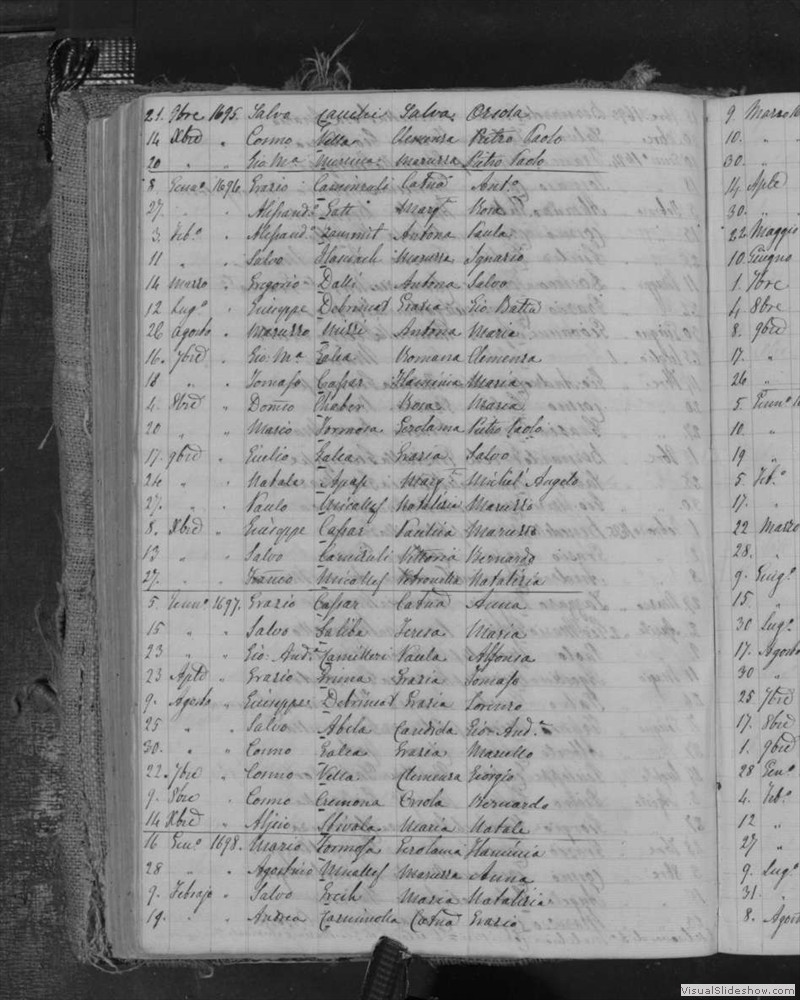 21. 9bre 1695. Salvo Salvo. Orsola
14 Xbre „ Cosmo Vella Clemenza Pietro Paolo
20 „ „ Gio Mª Maruzza Pietro Paolo
8. Genº 1696. Grazio Caterª Antº
27. „ „ Alessandº Marg Rosa
3. Febº „ Alessandº Zammit Antona Paula
11 „ „ Salvo Maruzza Ignazio
14 Marzo „ Gregorio Dalli Antona Salvo
12 Lugº „ Giuseppe Debrincat Grazia Gio Batta
26 Agosto „ Maruzzo Antona Maria
16. 7bre „ Gio Mª Galea Romana Clemenza
18 „ „ Tomaso Cassar Flaminia Maria
4. 8bre „ Domco Rosa Maria
20 „ „ Mario Formosa Gerolama Pietro Paolo
17. 9bre „ Galea Grazia Salvo
24 „ „ Natale Marg Michiel Angelo
27. „ „ Paulo Micallef Natalizia Maruzzo
8. Xbre „ Giuseppe Cassar Paulica Maruzzo
13 „ „ Salvo Vittoria Bernardo
27. „ „ Franco Micallef Petronilla Natalizia
5. Gennº 1697. Grazio Cassar Catna Anna
15 „ „ Salvo Saliba Teresa Maria
23 „ „ Gio: Andª Camilleri Paula Alfonsa
23 Aple „ Grazio Grazia Tomaso
9. Agosto „ Giuseppe Debrincat Grazia Lorenzo
25 „ „ Salvo Abela Candida Gio: Andª
30. „ „ Cosmo Galea Grazia Marcello
22. 7bre „ Cosmo Vella Clemenza Giorgio
9. 8bre „ Cosmo Cremona Orsola Bernardo
14 Xbre „ Stivala Maria Natale
16 Genº 1698. Mario Formosa Gerolama Flaminia
28 „ „ Agostino Micallef Maruzza Anna
9. Febrajo „ Salvo Maria Natalizia
19. „ „ Andrea Catna Grazio
9. Marzo
10. „
30. „
14 Aple
30. „
22. Maggio
10. Giugno
1. 7bre
4. 8bre
8. 9bre
17. „
26 „
5. Gennº
10. „
19 „
5. Febº
17. „
22 Marzo
28. „
9. Giugº
15. „
30 Lugº
17. Agosto
30 „
25 7bre
17. 8bre
1. 9bre
28 Genº
4. Febº
12 „
27 „
9. Lugº
31. „
8. Agos
VisualSlideshow.com